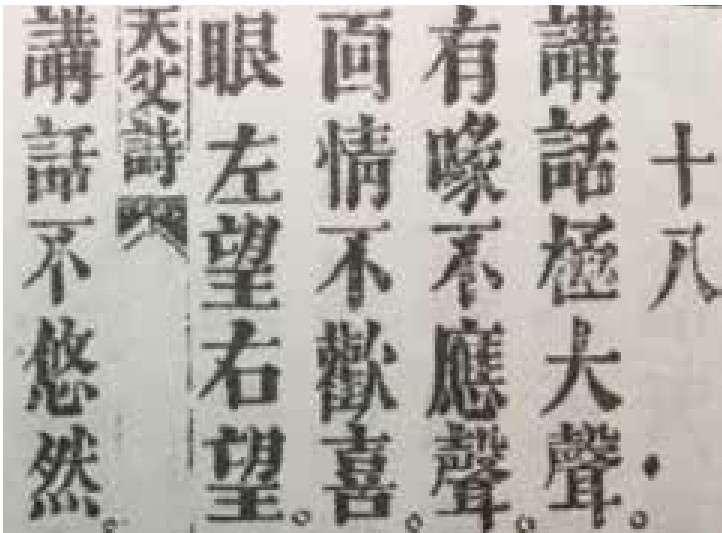 十八
講話極大聲。
有喙不應聲。
面情不歡喜。
眼左望右望。
天父詩
講話不悠然。